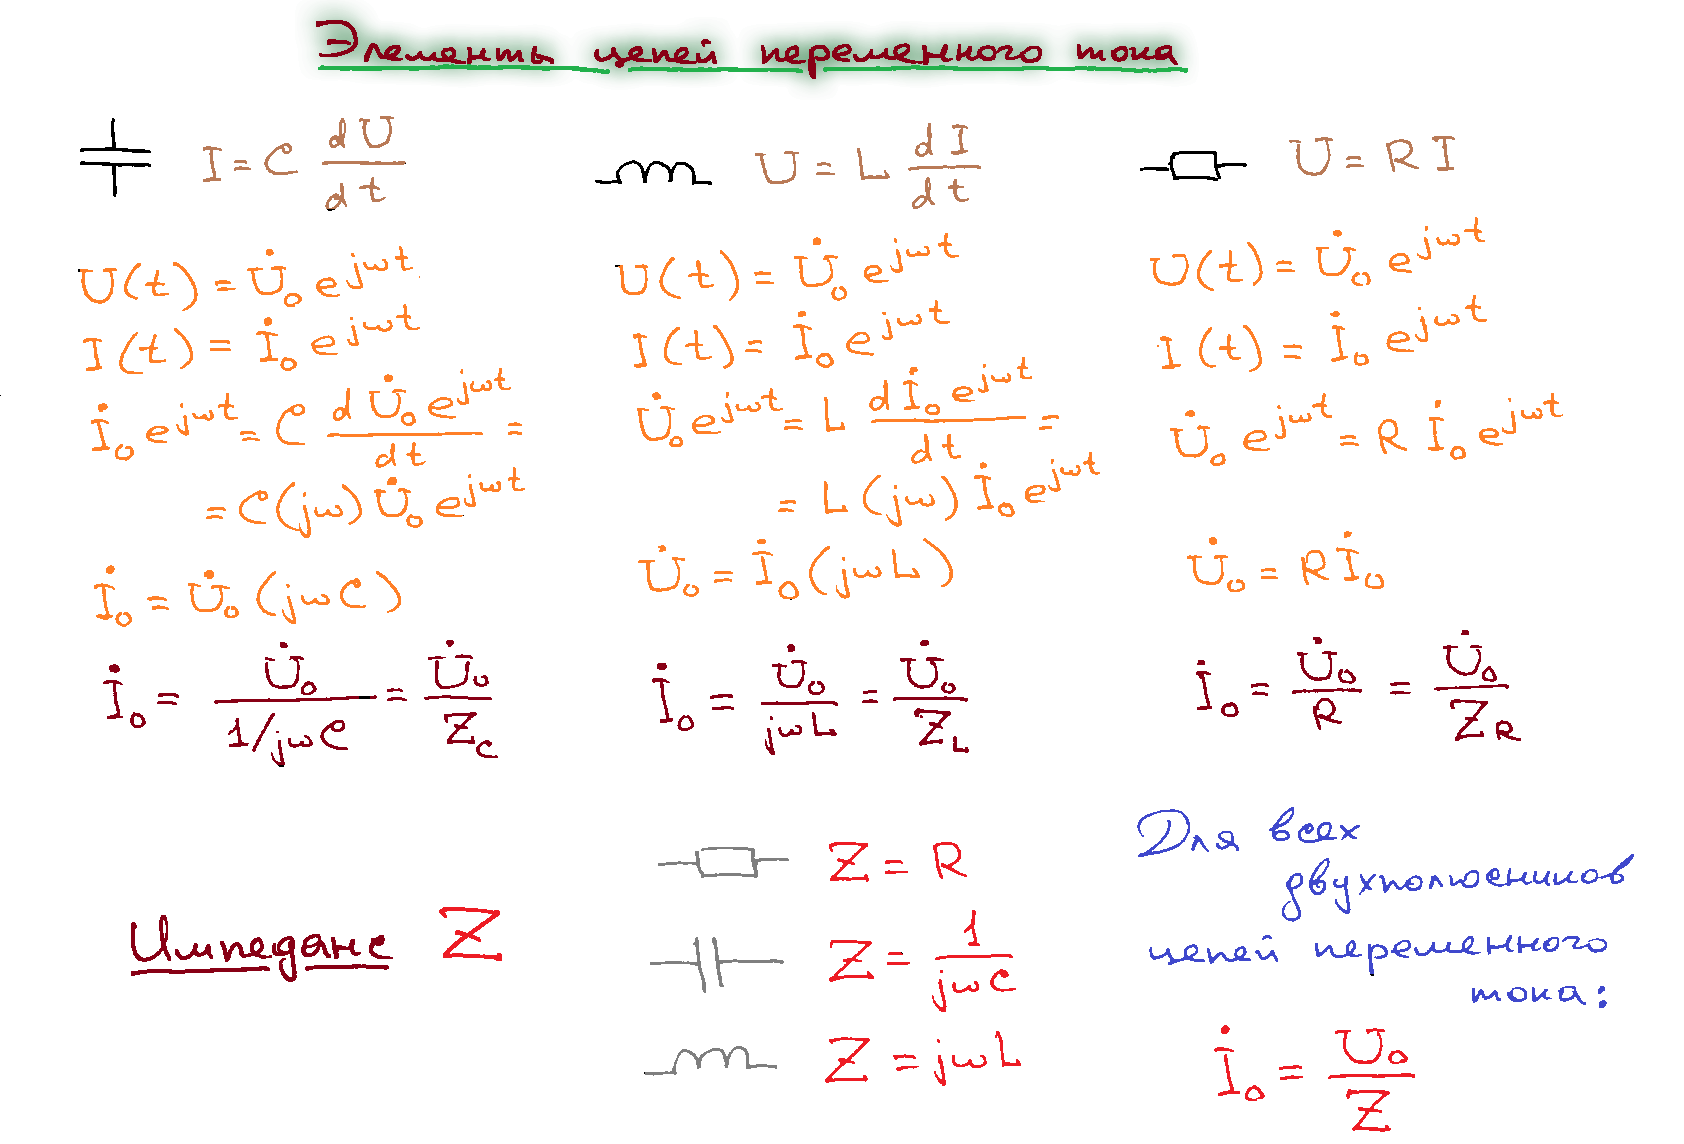 Элементы цепей переменного тока
I = C dU/dt
U(t) = U̇₀ e^jωt
I(t) = İ₀ e^jωt
İ₀ e^jωt = C d U̇₀ e^jωt / dt =
= C(jω) U̇₀ e^jωt
İ₀ = U̇₀ (jωC)
İ₀ = U̇₀ / (1/jωC) = U̇₀ / Z_C
U = L dI/dt
U(t) = U̇₀ e^jωt
I(t) = İ₀ e^jωt
U̇₀ e^jωt = L d İ₀ e^jωt / dt =
= L (jω) İ₀ e^jωt
U̇₀ = İ₀ (jωL)
İ₀ = U̇₀ / jωL = U̇₀ / Z_L
U = R I
U(t) = U̇₀ e^jωt
I(t) = İ₀ e^jωt
U̇₀ e^jωt = R İ₀ e^jωt
U̇₀ = R İ₀
İ₀ = U̇₀ / R = U̇₀ / Z_R
Импеданс Z
Z = R
Z = 1 / jωC
Z = jωL
Для всех
двухполюсников
цепей переменного
тока:
İ₀ = U₀ / Z